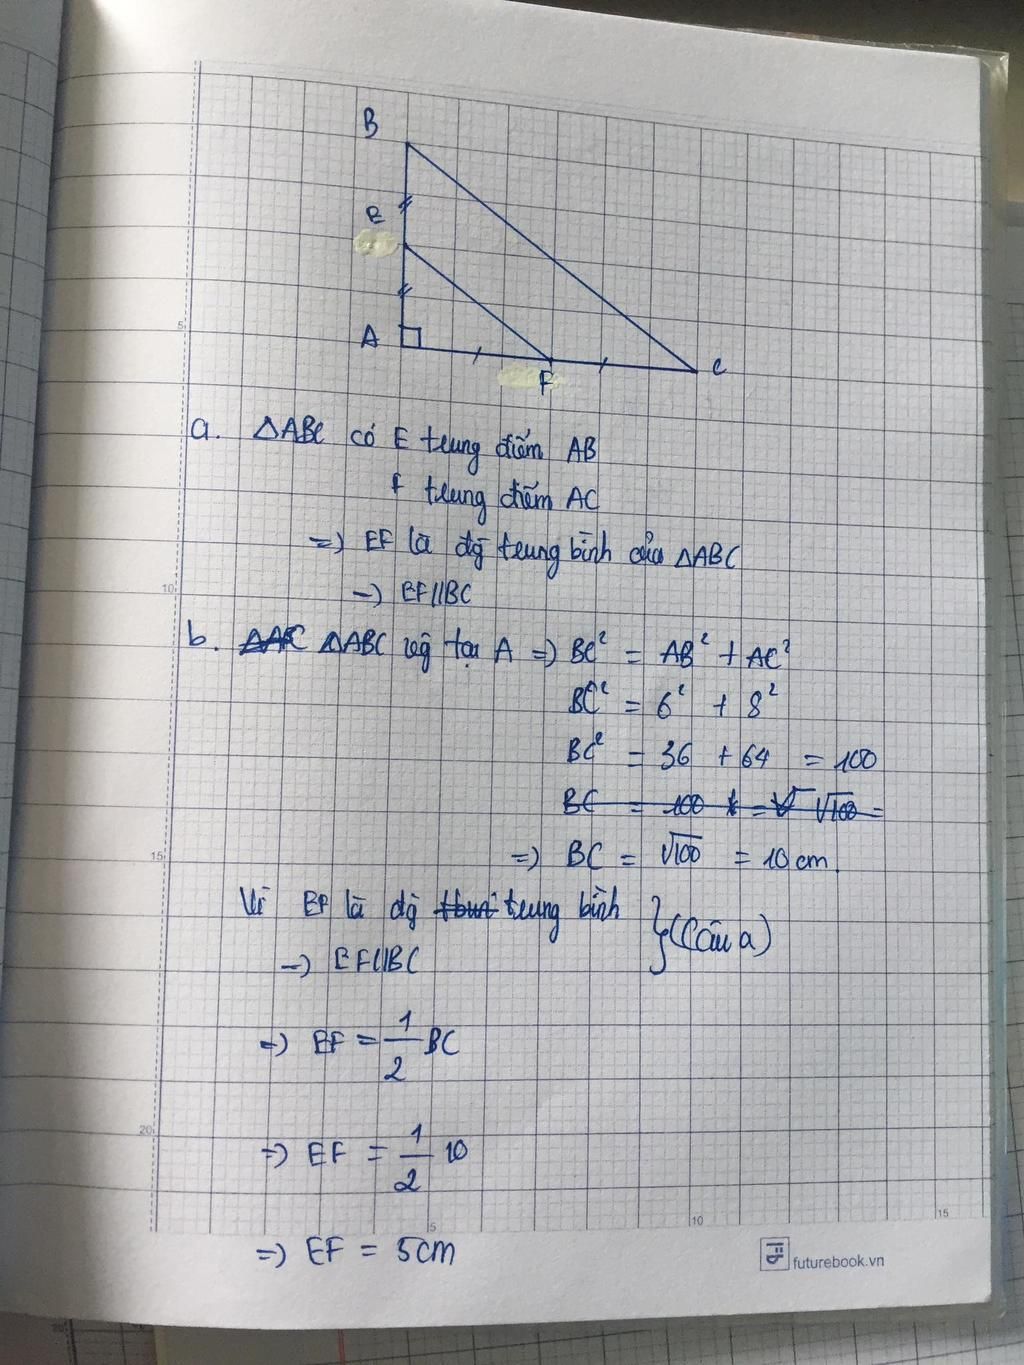 B
E
A
F
C
5
a. ΔABC có E trung điểm AB
F trung điểm AC
=> EF là độ trung bình của ΔABC
-> EF//BC
10
b. ΔABC vg tại A => BC² = AB² + AC²
BC² = 6² + 8²
BC² = 36 + 64 = 100
BC = 100 = √100 =
15
=> BC = √100 = 10 cm.
Vì EF là độ trung bình
-> EF//BC } (Câu a)
=> EF = 1/2 BC
20
=> EF = 1/2 10
5 10 15
=> EF = 5cm
futurebook.vn